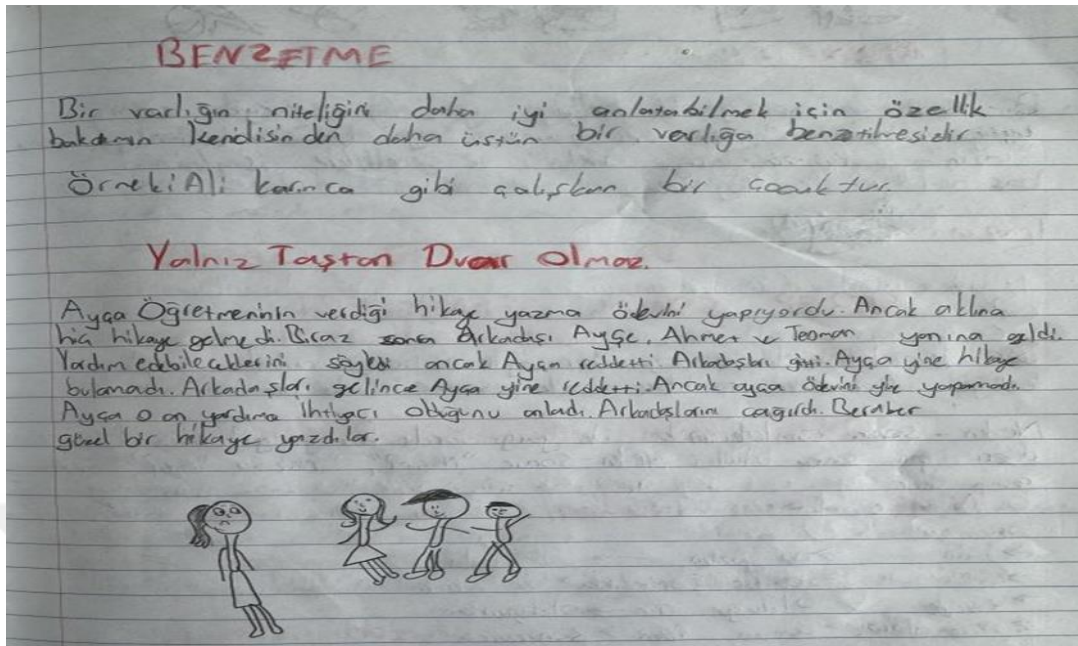 BENZETME
Bir varlığın niteliğini daha iyi anlatabilmek için özellik
bakımın kendisinden daha üstün bir varlığa benzetilmesidir
Örnek: Ali karınca gibi çalışkan bir çocuktur.
Yalnız Taştan Duvar Olmaz.
Ayça Öğretmeninin verdiği hikaye yazma ödevini yapıyordu. Ancak aklına
hiç hikaye gelmedi. Biraz sonra Arkadaşı Ayşe, Ahmet ve Teoman yanına geldi.
Yardım edebileceklerini söyledi ancak Ayça reddetti. Arkadaşları gitti. Ayça yine hikaye
bulamadı. Arkadaşları gelince Ayça yine reddetti. Ancak ayça ödevini yine yapamadı.
Ayça o an yardıma ihtiyacı olduğunu anladı. Arkadaşlarını çağırdı. Beraber
güzel bir hikaye yazdılar.